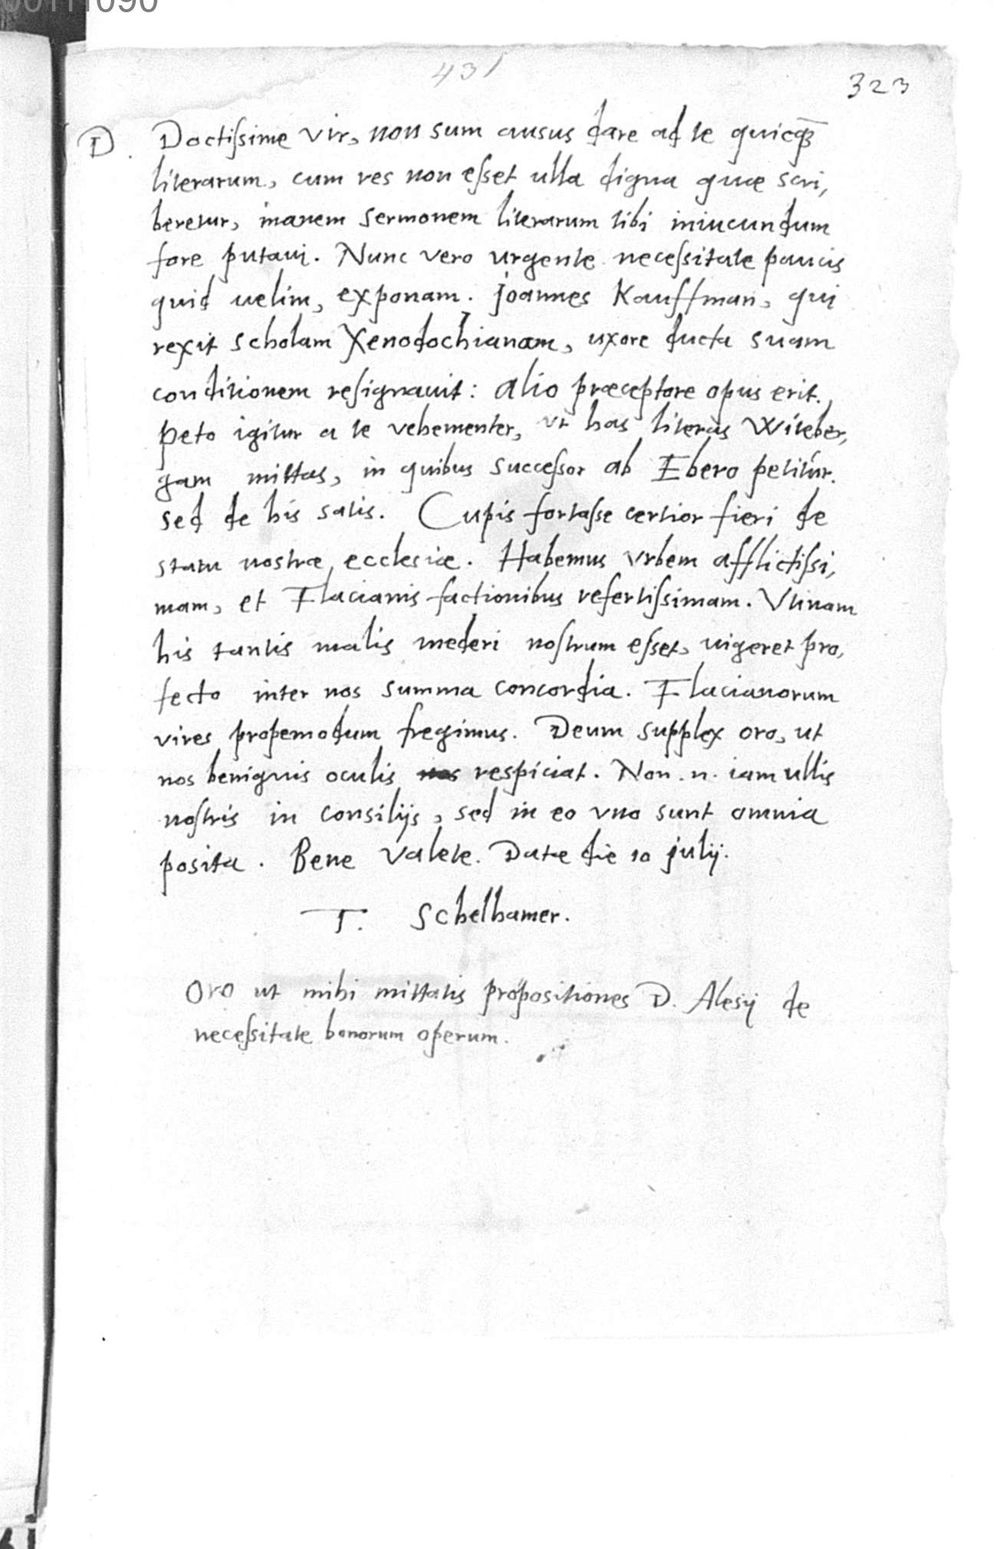 00111090
431
323
D. Doctissime vir, non sum ausus dare ad te quicq̃
literarum, cum res non esset ulla digna quæ scri,
beretur, inanem sermonem literarum tibi iniucundum
fore putavi. Nunc vero urgente necessitate paucis
quid uelim, exponam. Joannes Kauffman, qui
rexit scholam Xenodochianam, uxore ducta suam
conditionem resignavit: alio præceptore opus erit.
Peto igitur a te vehementer, ut has literas Witeber,
gam mittas, in quibus successor ab Ebero petitur.
Sed de his satis. Cupis fortasse certior fieri de
statu nostræ ecclesiæ. Habemus vrbem afflictissi,
mam, et Flacianis factionibus refertissimam. Vtinam
his tantis malis mederi nostrum esset, uigeret pro,
fecto inter nos summa concordia. Flacianorum
vires propemodum fregimus. Deum supplex oro, ut
nos benignis oculis respiciat. Non .n. iam ullis
nostris in consilijs, sed in eo vno sunt omnia
posita. Bene valete. Datæ die 10 julij.
T. Schelhamer.
Oro ut mihi mittatis propositiones D. Alesij de
necessitate bonorum operum.